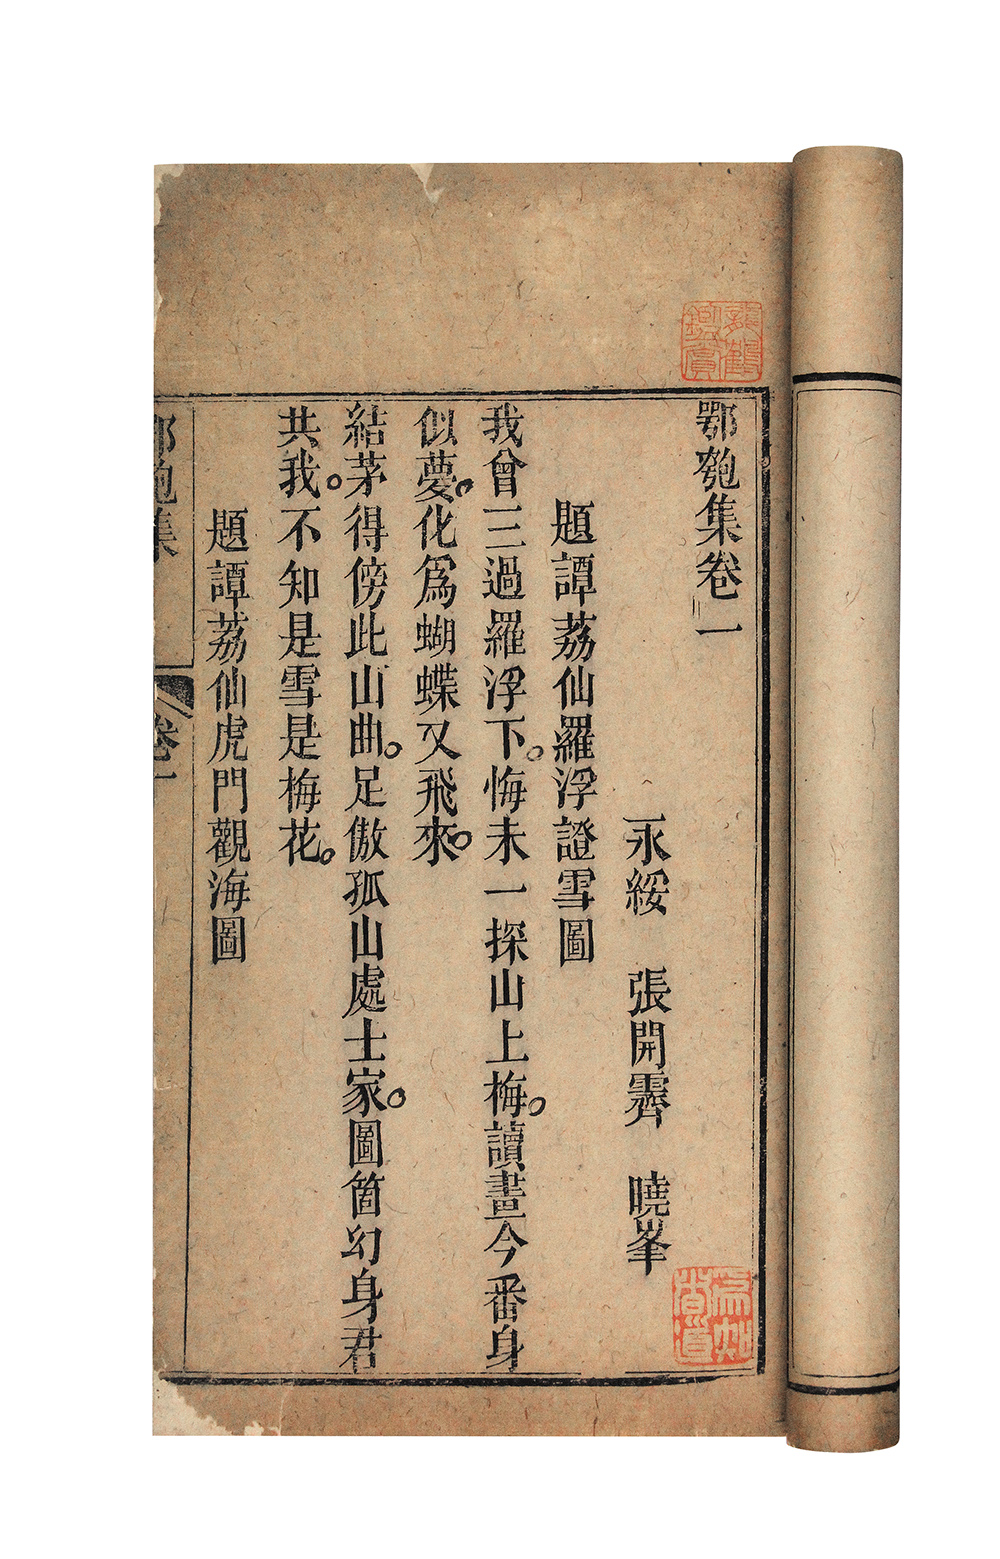 鄂匏集卷一
永綏 張開霽 曉峯
題譚荔仙羅浮證雪圖
我曾三過羅浮下。悔未一探山上梅。讀畫今番身
似夢。化爲蝴蝶又飛來。
結茅得傍此山曲。足傲孤山處士家。圖箇幻身君
共我。不知是雪是梅花。
題譚荔仙虎門觀海圖
鄂匏集
卷一